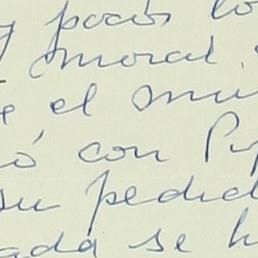 y pocos lo
moral.
e el mu
ó con P
su pedid
ada se h